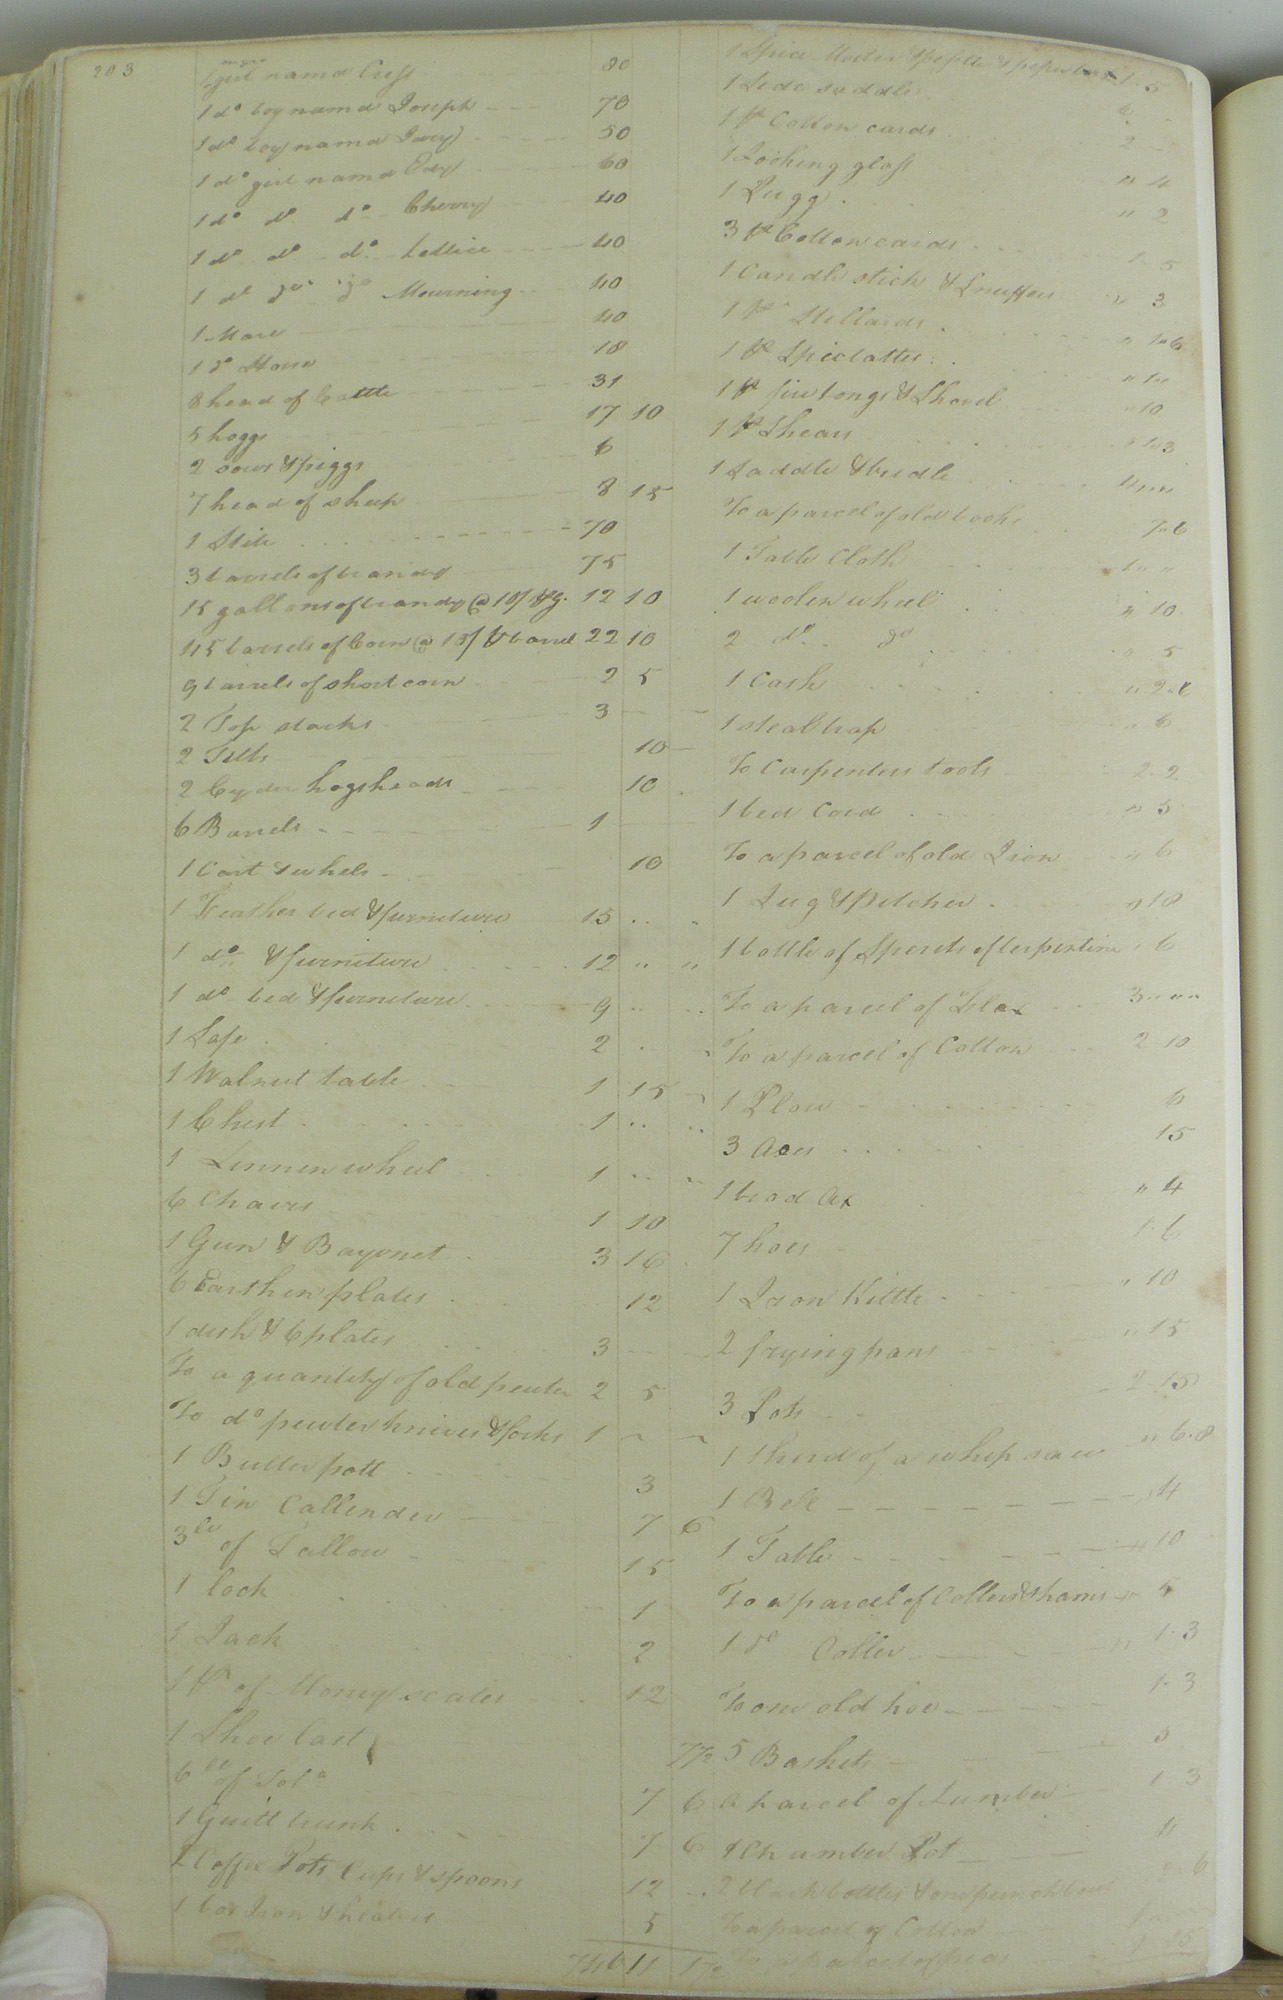 203
negro
1 girl namd Cress 80
1 do boy namd Joseph 70
1 do boy namd Davy 50
1 do girl namd Edy 60
1 do do do Cherry 40
1 do do do Lettice 40
1 do do do Mourning 40
1 Mare 40
1 do Horse 18
8 head of Cattle 31
5 hoggs 17 10
2 sows & piggs 6
7 head of sheep 8 15
1 Still 70
3 barrels of brandy 75
15 gallons of brandy @ 10/ pr g. 12 10
45 barrels of Corn @ 10/ pr barrel 22 10
9 barrels of short corn 2 5
2 Top stacks 3
2 Tubs 10
2 Cyder hogsheads 10
6 Barrels 1
1 Cart & whels 10
1 Feather bed & furniture 15 " "
1 do & furniture 12 " "
1 do bed & furniture 9 " "
1 Safe 2
1 Walnut table 1 15
1 Chest 1 " "
1 Linnen wheel 1 " "
6 Chairs 1 10
1 Gun & Bayonet 3 16
6 Earthen plates 12
1 dish & 6 plates 3
To a quantity of old pewter 2 5
To do pewter knives & forks 1
1 Butter pott 3
1 Tin Callender 7 6
3 lb of Tallow 15
1 lock 1
1 Jack 2
1 pr of Money scales 12
1 Shoe last 7½
6 lb of Tobo 7 6
1 Guilt trunk 7 6
2 Coffee Pots Cups & spoons 12
1 box Iron & heaters 5
746 11 1½
1 Spice Morter & pestle & peper box 1 5
1 Side saddle 6
1 pr Cotton cards 2
1 Looking glass " 4
1 Rugg " 2
3 pr Cotton cards 1 5
1 Candle stick & Snuffers " 3
1 pr Stillards " 1 6
1 pr Spectatles " 1 "
1 pr fire tongs & Shovel " 10
1 pr Shears " 1 3
1 Saddle & bridle 4 " "
To a parcel of old books 7 6
1 Table Cloth 1 " "
1 woolen wheel " 10
2 do do " 5
1 Cask " 2 6
1 steal trap " 6
To Carpenters tools 2 2
1 bed Cord " 5
To a parcel of old Iron " 6
1 Jug & Pitcher " 10
1 bottle of Sperits of terpintine " 6
To a parcel of Flax 3 " "
To a parcel of Cotton 2 10
1 Plow 6
3 Axes 15
1 broad Ax " 4
7 hoes 1 6
1 Iron Kittle " 10
2 frying pans " 15
3 Pots 2 15
1 third of a whip saw " 6 8
1 Bell " 4
1 Table " 10
To a parcel of Collers & hams " 5
1 do Coller " 1 3
To one old hoe 1 3
5 Baskets 3
a parcel of Lumber 1 3
1 Chamber Pot 4
2 black bottles & one punch bowl 2 6
To a parcel of Cotton 1
To a parcel of peas 1 10